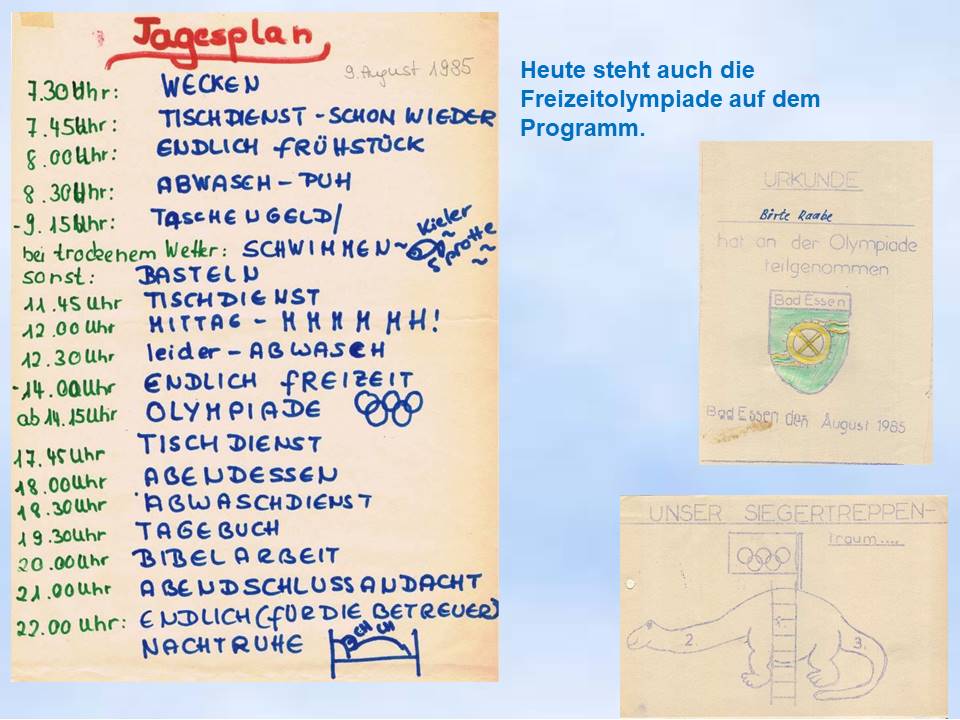 Tagesplan
9. August 1985
7.30 Uhr: WECKEN
7.45 Uhr: TISCHDIENST - SCHON WIEDER
8.00 Uhr: ENDLICH FRÜHSTÜCK
8.30 Uhr: ABWASCH - PUH
- 9.15 Uhr: TASCHENGELD/
bei trockenem Wetter: SCHWIMMEN ~ Kieler Sprotte ~
sonst: BASTELN
11.45 Uhr TISCHDIENST
12.00 Uhr MITTAG - M M M M M H!
12.30 Uhr leider - ABWASCH
- 14.00 Uhr ENDLICH FREIZEIT
ab 14.15 Uhr OLYMPIADE
17.45 Uhr TISCHDIENST
18.00 Uhr ABENDESSEN
18.30 Uhr ABWASCHDIENST
19.30 Uhr TAGEBUCH
20.00 Uhr BIBELARBEIT
21.00 Uhr ABENDSCHLUSSANDACHT
22.00 Uhr: ENDLICH (FÜR DIE BETREUER)
NACHTRUHE
Heute steht auch die
Freizeitolympiade auf dem
Programm.
URKUNDE
Birte Raabe
hat an der Olympiade
teilgenommen
Bad Essen
Bad Essen den August 1985
UNSER SIEGERTREPPEN-
traum....
2.
3.